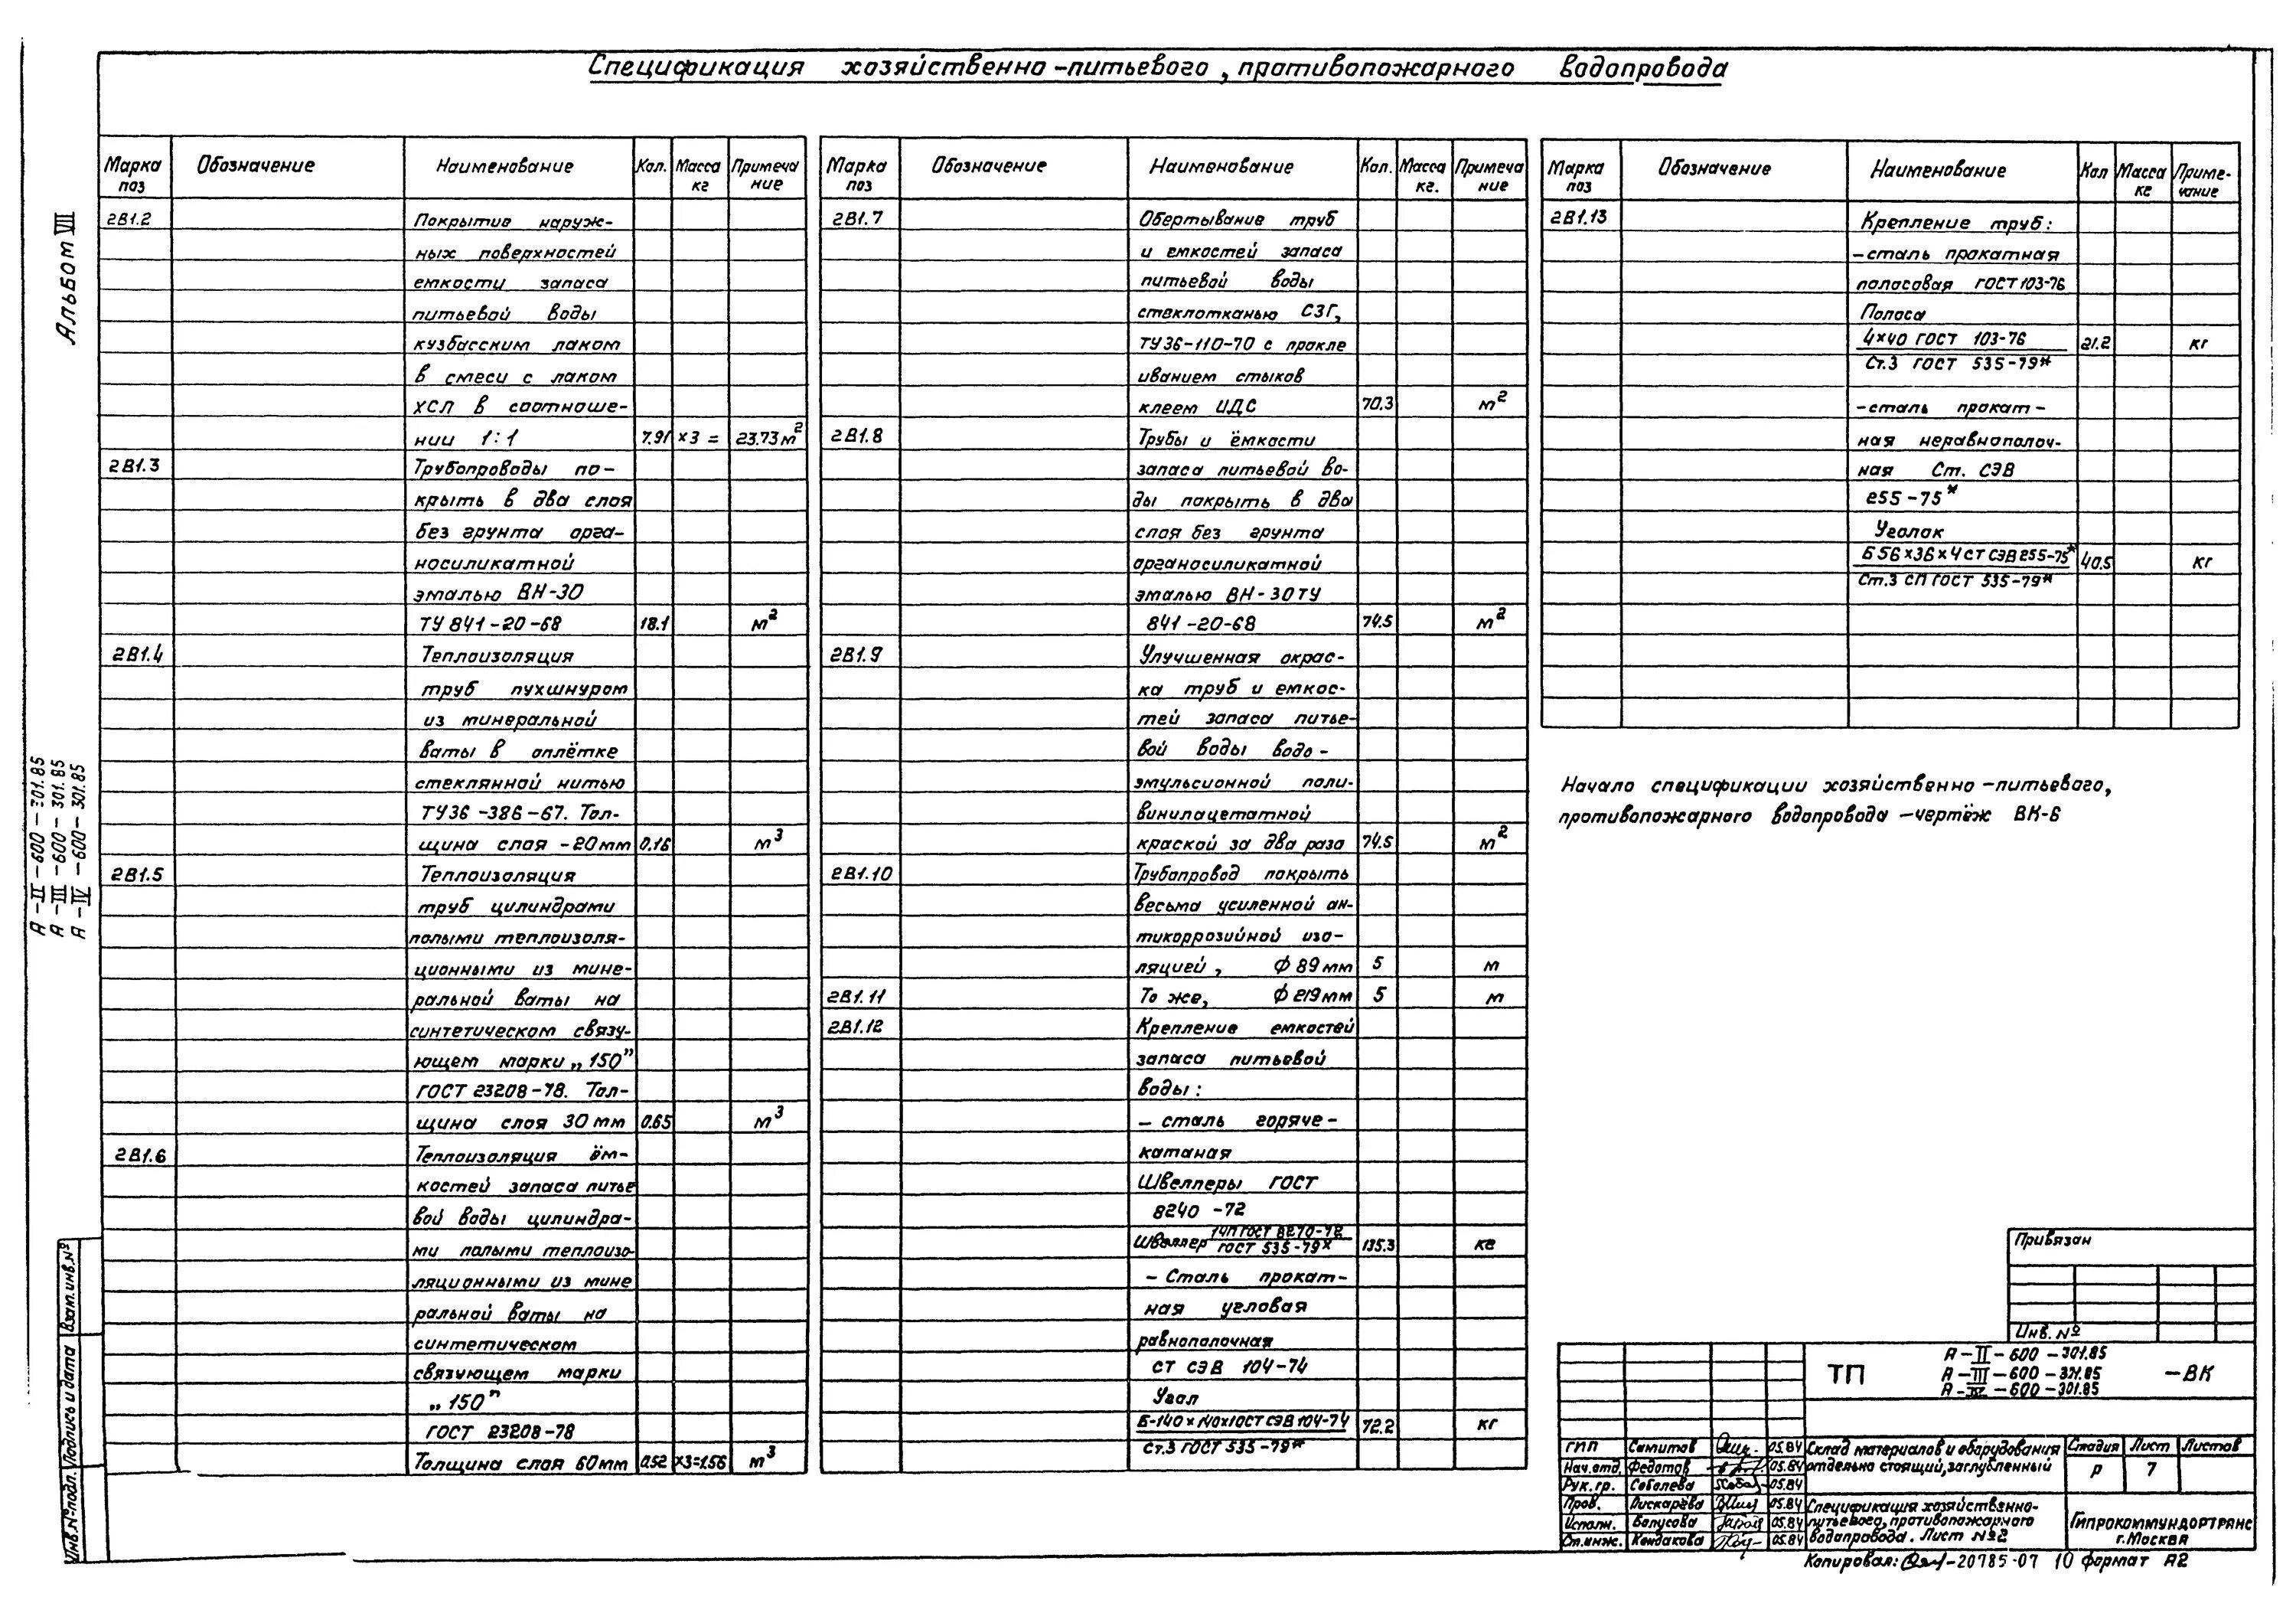 Спецификация хозяйственно-питьевого, противопожарного водопровода
Альбом VIII
А-II-600-301.85
А-III-600-301.85
А-IV-600-301.85
Марка поз Обозначение Наименование Кол. Масса кг Примеча ние
2В1.2 Покрытие наруж-
ных поверхностей
емкости запаса
питьевой воды
кузбасским лаком
в смеси с лаком
ХСЛ в соотноше-
нии 1:1 7.91 ×3 = 23.73 м²
2В1.3 Трубопроводы по-
крыть в два слоя
без грунта орга-
носиликатной
эмалью ВН-30
ТУ 841-20-68 18.1 м²
2В1.4 Теплоизоляция
труб пухшнуром
из минеральной
ваты в оплётке
стеклянной нитью
ТУ36-386-67. Тол-
щина слоя -20мм 0.16 м³
2В1.5 Теплоизоляция
труб цилиндрами
полыми теплоизоля-
ционными из мине-
ральной ваты на
синтетическом связу-
ющем марки „150”
ГОСТ 23208-78. Тол-
щина слоя 30 мм 0.65 м³
2В1.6 Теплоизоляция ём-
костей запаса питье
вой воды цилиндра-
ми полыми теплоизо-
ляционными из мине
ральной ваты на
синтетическом
связующем марки
„150”
ГОСТ 23208-78
Толщина слоя 60мм 0.52 ×3=1.56 м³
Марка поз Обозначение Наименование Кол. Масса кг. Примеча ние
2В1.7 Обертывание труб
и емкостей запаса
питьевой воды
стеклотканью СЗГ,
ТУ36-110-70 с прокле
иванием стыков
клеем ИДС 70.3 м²
2В1.8 Трубы и ёмкости
запаса питьевой во-
ды покрыть в два
слоя без грунта
органосиликатной
эмалью ВН-30 ТУ
841-20-68 74.5 м²
2В1.9 Улучшенная окрас-
ка труб и емкос-
тей запаса питье-
вой воды водо-
эмульсионной поли-
винилацетатной
краской за два раза 74.5 м²
2В1.10 Трубопровод покрыть
весьма усиленной ан-
тикоррозийной изо-
ляцией, ϕ 89 мм 5 м
2В1.11 То же, ϕ 219мм 5 м
2В1.12 Крепление емкостей
запаса питьевой
воды:
- сталь горяче-
катаная
Швеллеры ГОСТ
8240 -72
Швеллер 14П ГОСТ 8270-72
ГОСТ 535-79* 135.3 кг
- Сталь прокат-
ная угловая
равнополочная
СТ СЭВ 104-74
Угол
Б-140×140×10СТ СЭВ 104-74 72.2 кг
Ст.3 ГОСТ 535-79*
Марка поз Обозначение Наименование Кол Масса кг Приме-чание
2В1.13 Крепление труб:
-сталь прокатная
полосовая ГОСТ 103-76
Полоса
4×40 ГОСТ 103-76 21.2 кг
Ст.3 ГОСТ 535-79*
-сталь прокат-
ная неравнополоч-
ная Ст. СЭВ
255-75*
Уголок
Б 56×36×4 СТ СЭВ 255-75* 40.5 кг
Ст.3 СП ГОСТ 535-79*
Начало спецификации хозяйственно-питьевого,
противопожарного водопровода -чертёж ВК-6
Привязан
Инв. №
ТП А-II-600-301.85
А-III-600-301.85
А-IV-600-301.85
-ВК
ГИП 05.84
Нач.отд. Федотов 05.84
Рук.гр. Соболева 05.84
Пров. Пискарёва 05.84
Исполн. 05.84
Ст.инж. Кондакова 05.84
Склад материалов и оборудования
отдельно стоящий, заглубленный
Стадия Лист Листов
Р 7
Спецификация хозяйственно-
питьевого, противопожарного
водопровода. Лист №2
Гипрокоммундортранс
г.Москва
Копировал: 20785-07 10 формат А2
Инв.№подл. Подпись и дата Взам.инв.№